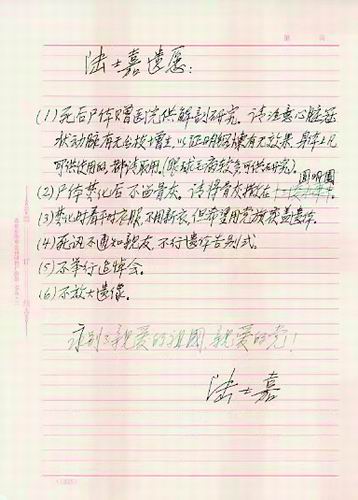 陆士嘉遗愿:
(1)死后尸体赠医院供解剖研究。请注意心脏冠
状动脉有无台技增生,以证明锻炼有无效果,身体上凡
可供使用的,都请取用。(眼球毛病较多可供研究)
(2)尸体焚化后不留骨灰。请将骨灰撒在 圆明园
(3)焚化时着平时衣服,不用新衣,但希望用党旗覆盖遗体。
(4)死讯不通知亲友,不行遗体告别式。
(5)不举行追悼会。
(6)不放大遗像。
永别了亲爱的祖国,亲爱的党!
陆士嘉